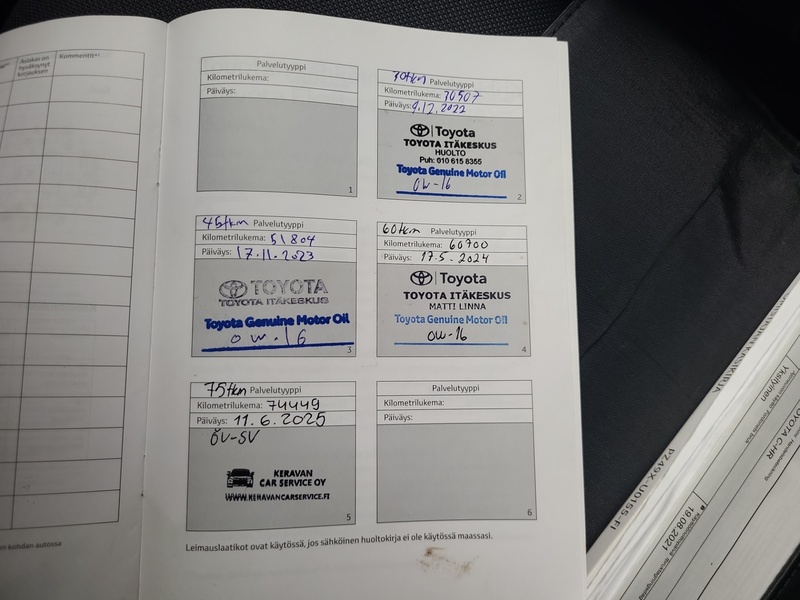 Asiakas on
hyväksynyt
korjauksen
Kommentit
Palvelutyyppi
Kilometrilukema:
Päiväys:
1
Palvelutyyppi
Kilometrilukema: 30507
Päiväys: 9.12.2022
Toyota
TOYOTA ITÄKESKUS
HUOLTO
Puh: 010 615 8355
Toyota Genuine Motor Oil
0W-16
2
45tkm Palvelutyyppi
Kilometrilukema: 51804
Päiväys: 17.11.2023
TOYOTA
TOYOTA ITÄKESKUS
Toyota Genuine Motor Oil
0W-16
3
60tkm Palvelutyyppi
Kilometrilukema: 60700
Päiväys: 17.5.2024
Toyota
TOYOTA ITÄKESKUS
MATTI LINNA
Toyota Genuine Motor Oil
0W-16
4
75tkm Palvelutyyppi
Kilometrilukema: 74449
Päiväys: 11.6.2025
ÖV-SV
KERAVAN
CAR SERVICE OY
WWW.KERAVANCARSERVICE.FI
5
Palvelutyyppi
Kilometrilukema:
Päiväys:
6
Leimauslaatikot ovat käytössä, jos sähköinen huoltokirja ei ole käytössä maassasi.
PZ49X-U0155-FI
Yksityinen
TOYOTA C-HR
19.08.2021